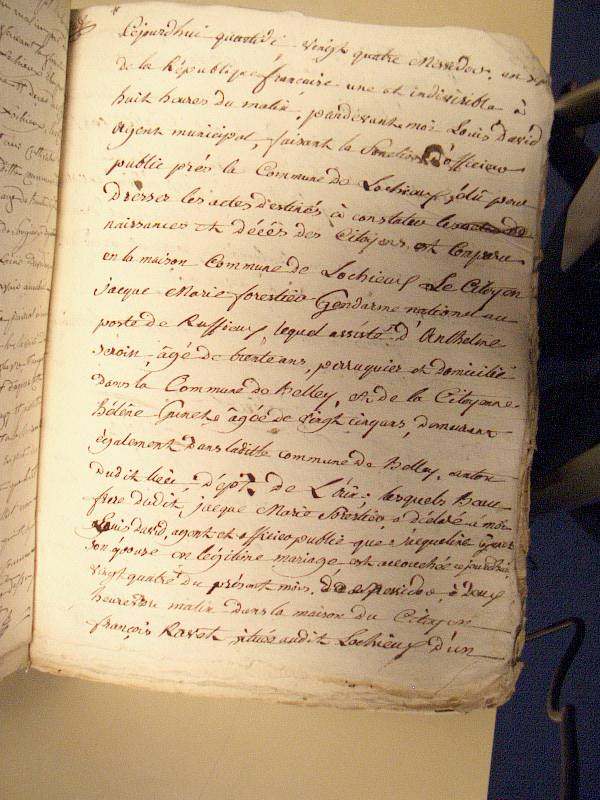 Cejourdhui quartidi vingt quatre Messidor, en
de la République française une et indivisible à
huit heures du matin, pardevant moi Louis David
Agent municipal, faisant la fonction d'officier
public près la Commune de Lochieux élu pour
Dresser les actes destinés à constater les
naissances et décés des Citoyens, est Comparu
en la maison Commune de Lochieux Le Citoyen
jacque Marie forestier Gendarme national au
poste de Ruffieux, lequel assisté d'Anthelme
âgé de trente ans, perruquier et domicilié
dans la Commune de Belley, et de la Citoyenne
hélène âgée de vingt cinq ans, demeurant
également dans ladite commune de Belley, canton
dudit lieu, de L'ain; lesquels Beau
frere dudit jacque Marie forestier a déclaré a moi
Louis david, agent et officier public que jacqueline
son épouse en légitime mariage est accouchée cejourdhui
vingt quatre du présent mois, à deux
heures du matin dans la maison du Citoyen
françois Ravet située audit Lochieux d'un